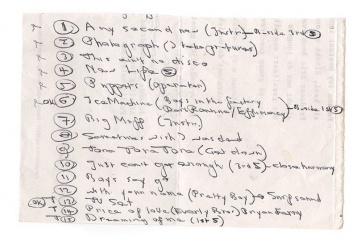 ① Any second now (Instr) B-side 3rd Ⓢ
② Photograph (
③ This ain't no disco
④ New Life Ⓢ
⑤ Puppets (Operation)
OK ⑥ Ice Machine (Boys in the factory / Efficiency) B-side 1st Ⓢ
⑦ Big Muff (Instr)
⑧ Sometimes wish I was dead
⑨ Tora Tora Tora (
⑩ Just can't get enough (3rd S) close harmony
⑪ Boys say go
⑫ with your name (Pretty Boy)
TV Set
Price of love (Everly Bros) Bryan Ferry
Dreaming of me (1st S)